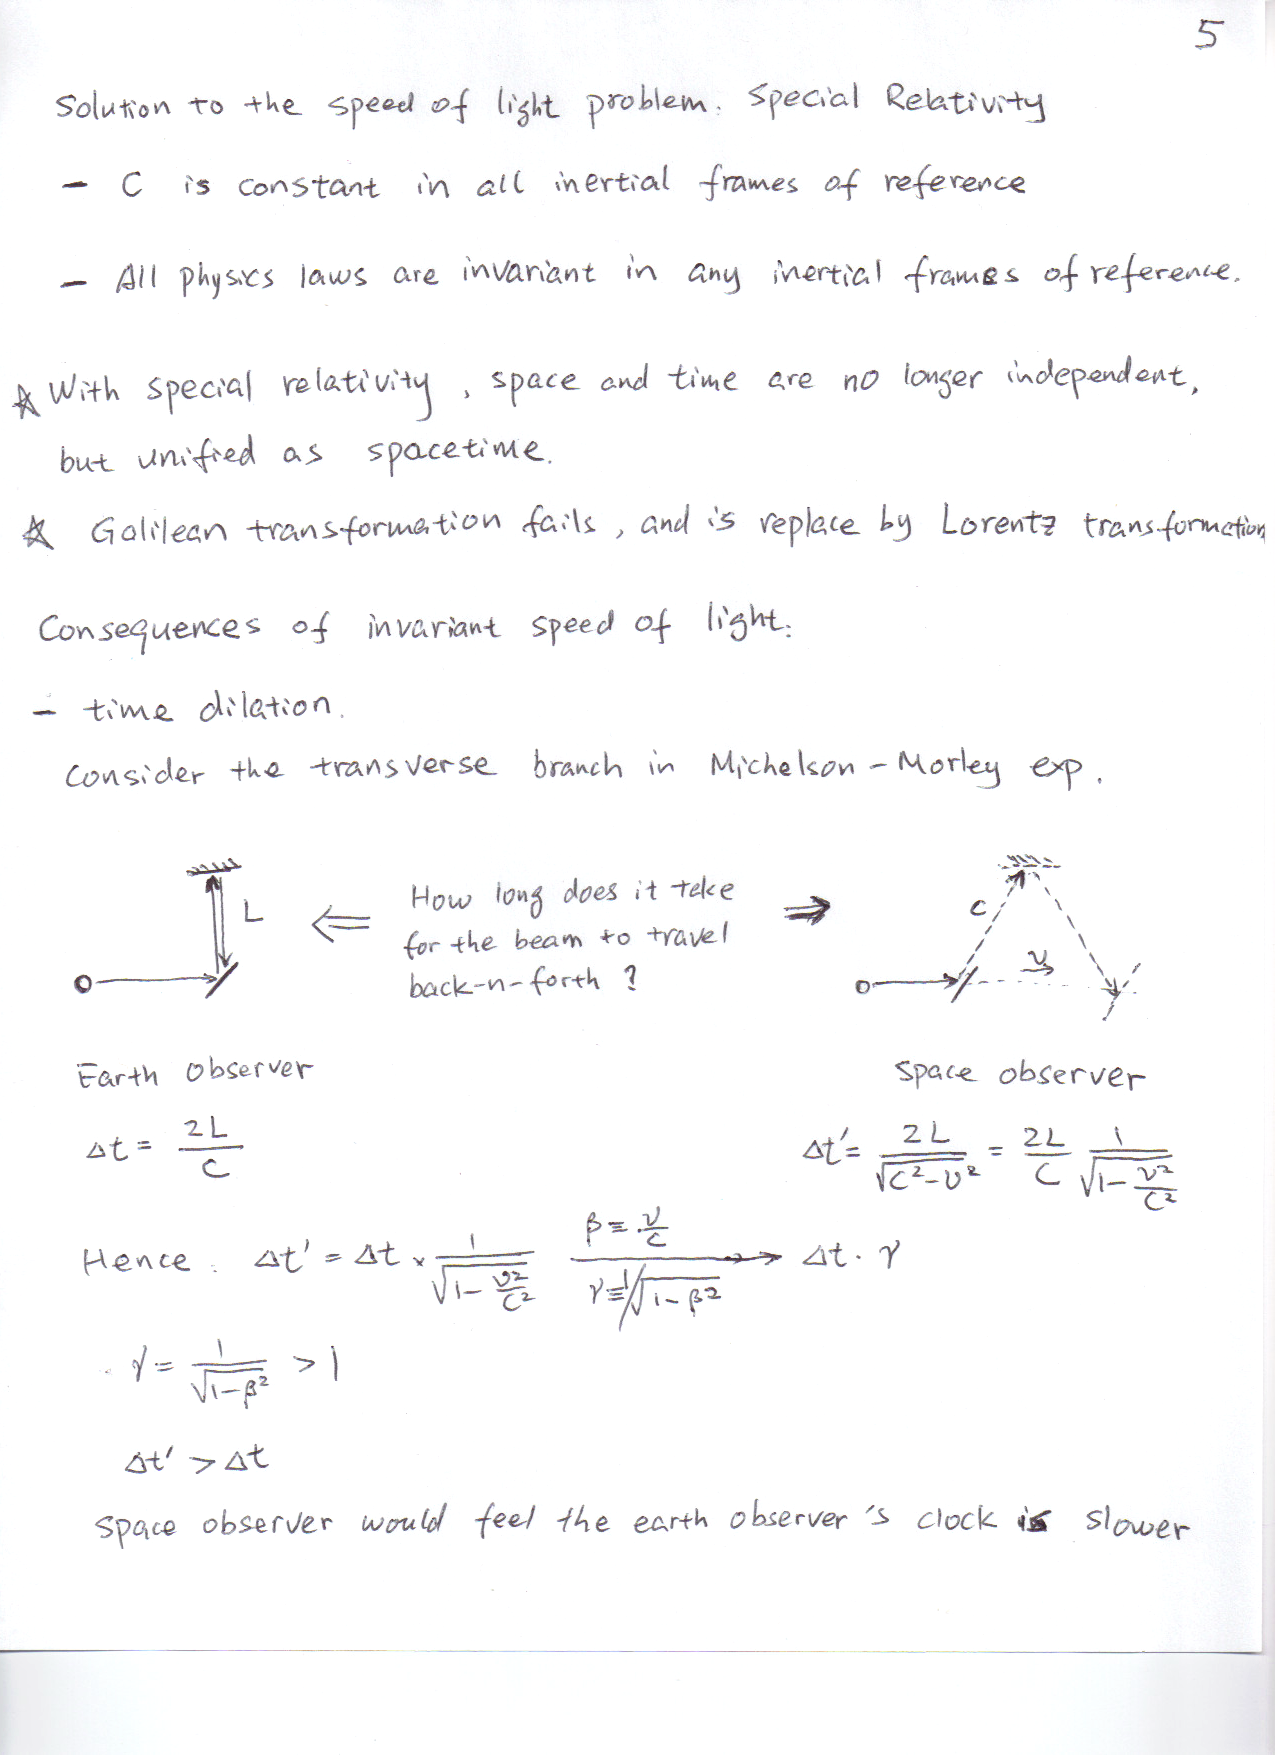 5
Solution to the speed of light problem: Special Relativity
- C is constant in all inertial frames of reference
- All physics laws are invariant in any inertial frames of reference.
☆ With special relativity, space and time are no longer independent,
but unified as spacetime.
☆ Galilean transformation fails, and is replace by Lorentz transformation
Consequences of invariant speed of light:
- time dilation.
Consider the transverse branch in Michelson-Morley exp.
L
⇐ How long does it take ⇒
for the beam to travel
back-n-forth ?
c
v
Earth observer
Space observer
Δt = 2L/C
Δt' = 2L/√(C²-v²) = 2L/C 1/√(1-v²/C²)
Hence: Δt' = Δt × 1/√(1-v²/C²) β≡v/c γ≡1/√(1-β²) → Δt·γ
γ = 1/√(1-β²) > 1
Δt' > Δt
Space observer would feel the earth observer's clock is slower